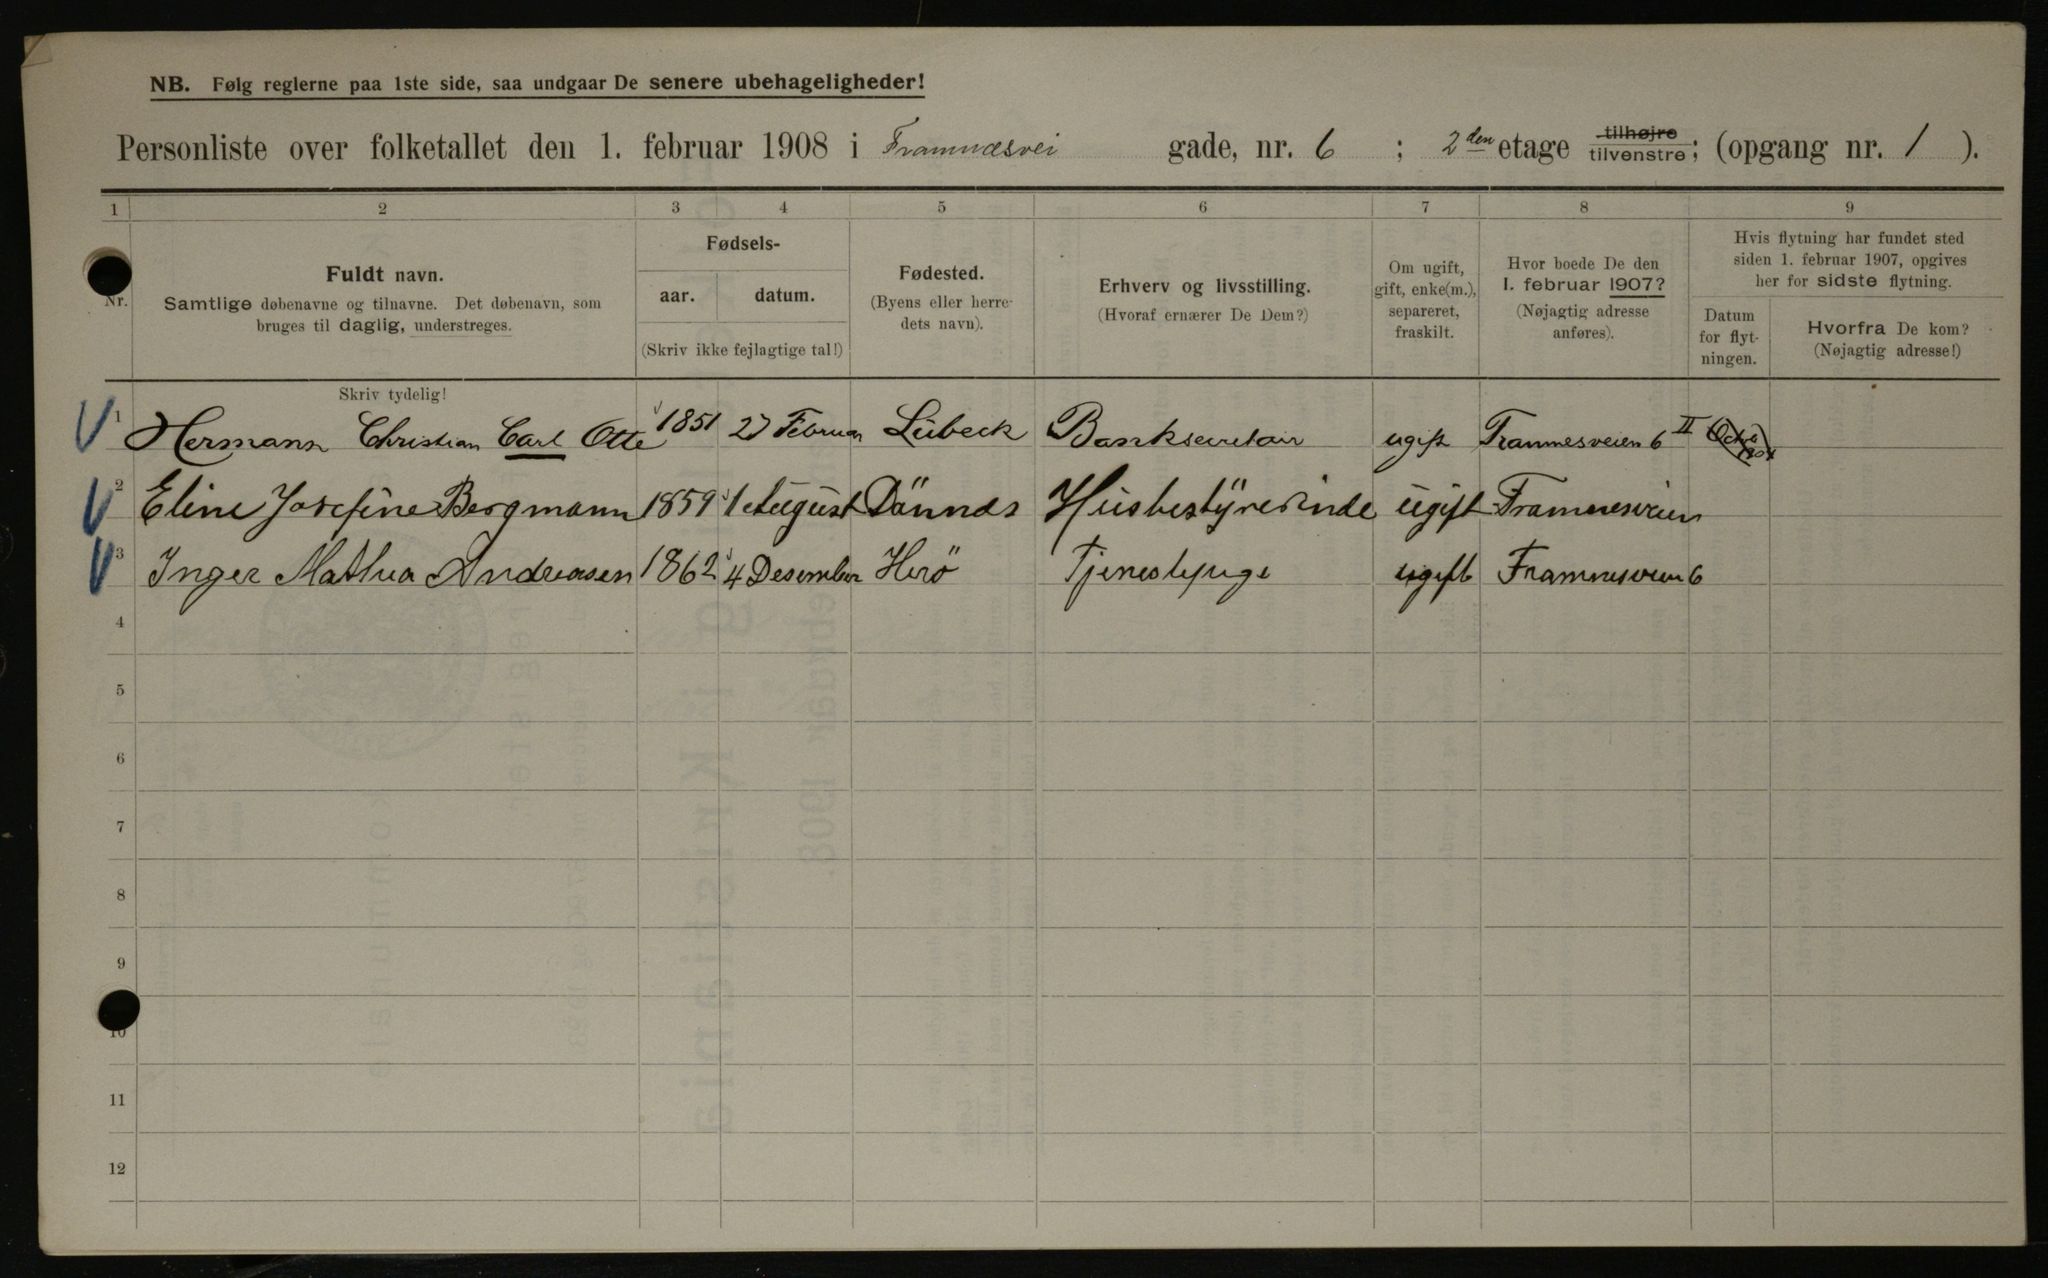 NB. Følg reglerne paa 1ste side, saa undgaar De senere ubehageligheder!
Personliste over folketallet den 1. februar 1908 i Framnæsvei gade, nr. 6 ; 2den etage tilhøjre tilvenstre; (opgang nr. 1 ).
1 2 3 4 5 6 7 8 9
Nr.
Fuldt navn.
Samtlige døbenavne og tilnavne. Det døbenavn, som
bruges til daglig, understreges.
Fødsels-
aar. datum.
(Skriv ikke fejlagtige tal!)
Fødested.
(Byens eller herre-
dets navn).
Erhverv og livsstilling.
(Hvoraf ernærer De Dem?)
Om ugift,
gift, enke(m.),
separeret,
fraskilt.
Hvor boede De den
1. februar 1907?
(Nøjagtig adresse
anføres).
Hvis flytning har fundet sted
siden 1. februar 1907, opgives
her for sidste flytning.
Datum
for flyt-
ningen.
Hvorfra De kom?
(Nøjagtig adresse!)
Skriv tydelig!
1 Hermann Christian Carl Otte 1851 27 Februar Lübeck Banksecretair ugift Framnesveien 6 II
2 Eline Josefine Bergmann 1859 1 August Dönnes Husbestyrerinde ugift Framnesveien
3 Inger Mathea Andreasen 1862 4 Desember Herö Tjenestepige ugift Framnesveien 6
4
5
6
7
8
9
10
11
12